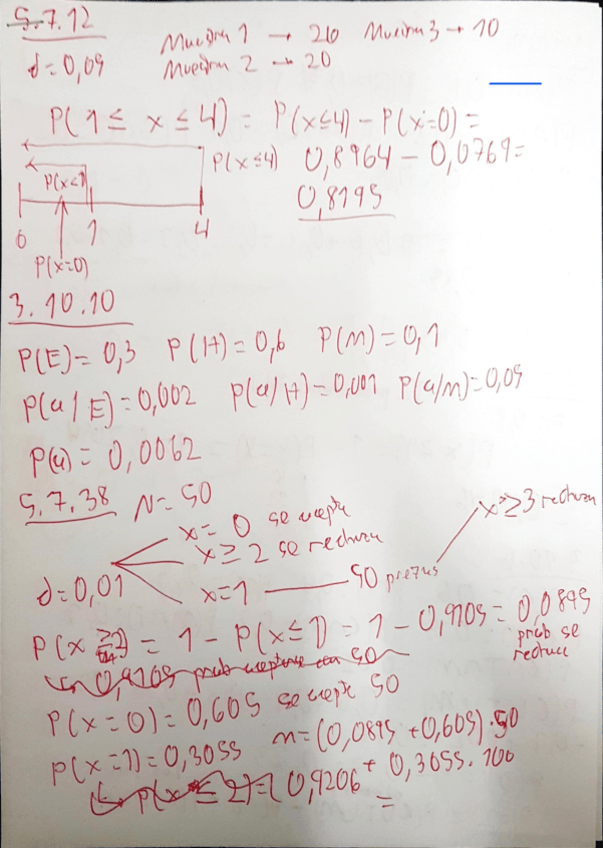 5.7.12
Muestra 1 → 20 Muestra 3 → 10
d = 0,09 Muestra 2 → 20
P(1 ≤ x ≤ 4) = P(x≤4) - P(x=0) =
P(x≤4) 0,8964 - 0,0769 =
P(x<1) 0,8195
0 1 4
P(x=0)
3.10.10
P(E) = 0,3 P(H) = 0,6 P(M) = 0,1
P(a/E) = 0,002 P(a/H) = 0,001 P(a/M) = 0,05
P(a) = 0,0062
5.7.38 N = 50
x = 0 se acepta
x ≥ 2 se rechaza x ≥ 3 rechaza
d = 0,01 x = 1 50 piezas
P(x ≥ 2) = 1 - P(x≤1) = 1 - 0,9105 = 0,0895
prob se
rechace
0,9105 prob aceptarse con 50
P(x=0) = 0,605 se acepta 50
P(x=1) = 0,3055 n = (0,0895 + 0,605) · 50
+ 0,3055 · 100
P(x ≤ 2) = 0,9206 =